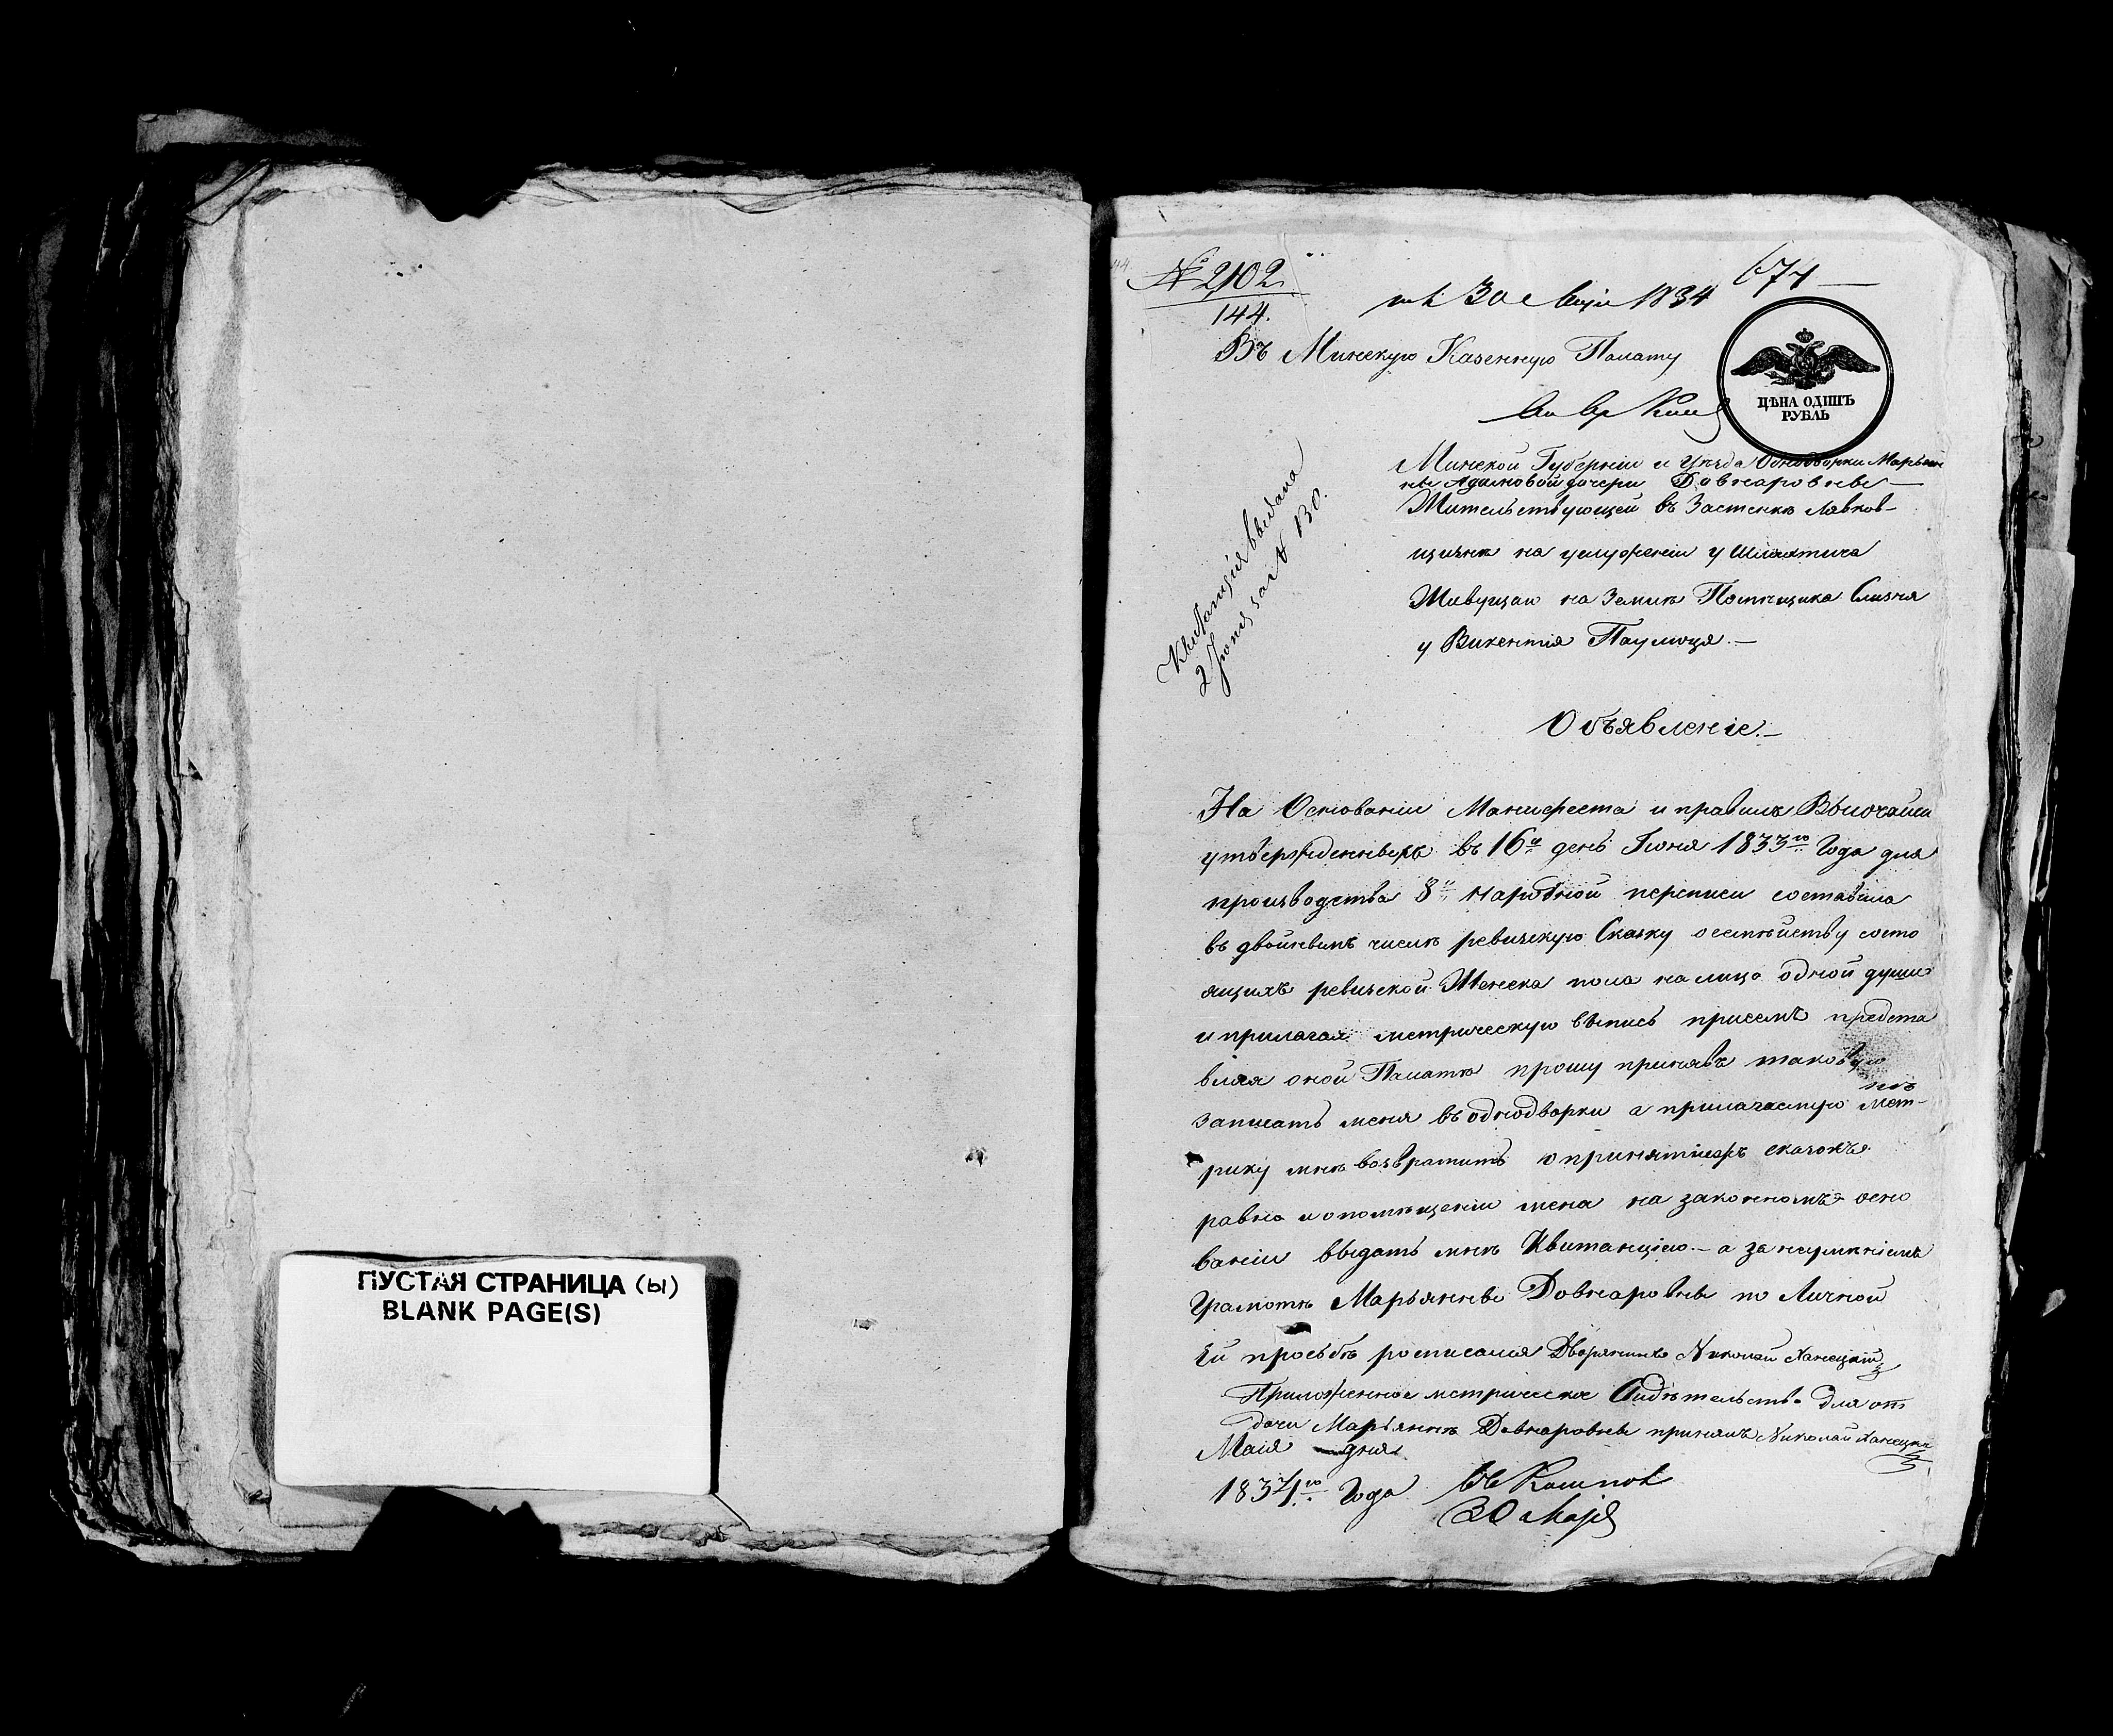 ПУСТАЯ СТРАНИЦА (ы)
BLANK PAGE(S)
№ 2102
144.
30 1834
674
Въ Минскую Казенную Палату
ЦѢНА ОДИНЪ
РУБЛЬ
Квитанція выдана
2 Іюня за № 130.
Минской Губерніи и Уѣзда Однодворки Марьян
ны Адамовой дочери Довнаровны
Жительствующей въ Застенкѣ Лявков-
щизнѣ на услуженіи у Шляхтича
Живущаго на Земли Помѣщика Слизня
у Викентія
Объявленіе.
На Основаніи Манифеста и правилъ Высочайши
утвержденныхъ въ 16й день Іюня 1833го Года для
производства 8й народной переписи составила
въ двойнымъ числѣ ревизскую Сказку о семѣйству состо
ящихъ ревизской Женска пола на лицо одной души
и прилагая метрическую выпись присемъ предста
вляя оной Палатѣ прошу принявъ таковую
записать меня въ однодворки а прилагаемую мет-
рику мнѣ возвратить о принятіихъ сказокъ
равно и опомѣщеніи мена на законномъ осно
ваніи выдать мнѣ Квитанцію. — а за неумѣніемъ
Грамотѣ Марьянны Довнаровны по Личной
Ей просьбѣ росписался Дворянинъ Николай Ханецкій
Приложенное метрическое Свидѣтельство для от
дачи Марьяннѣ Довнаровны принялъ Николай Ханецкій
Маія дня
1834го Года
30